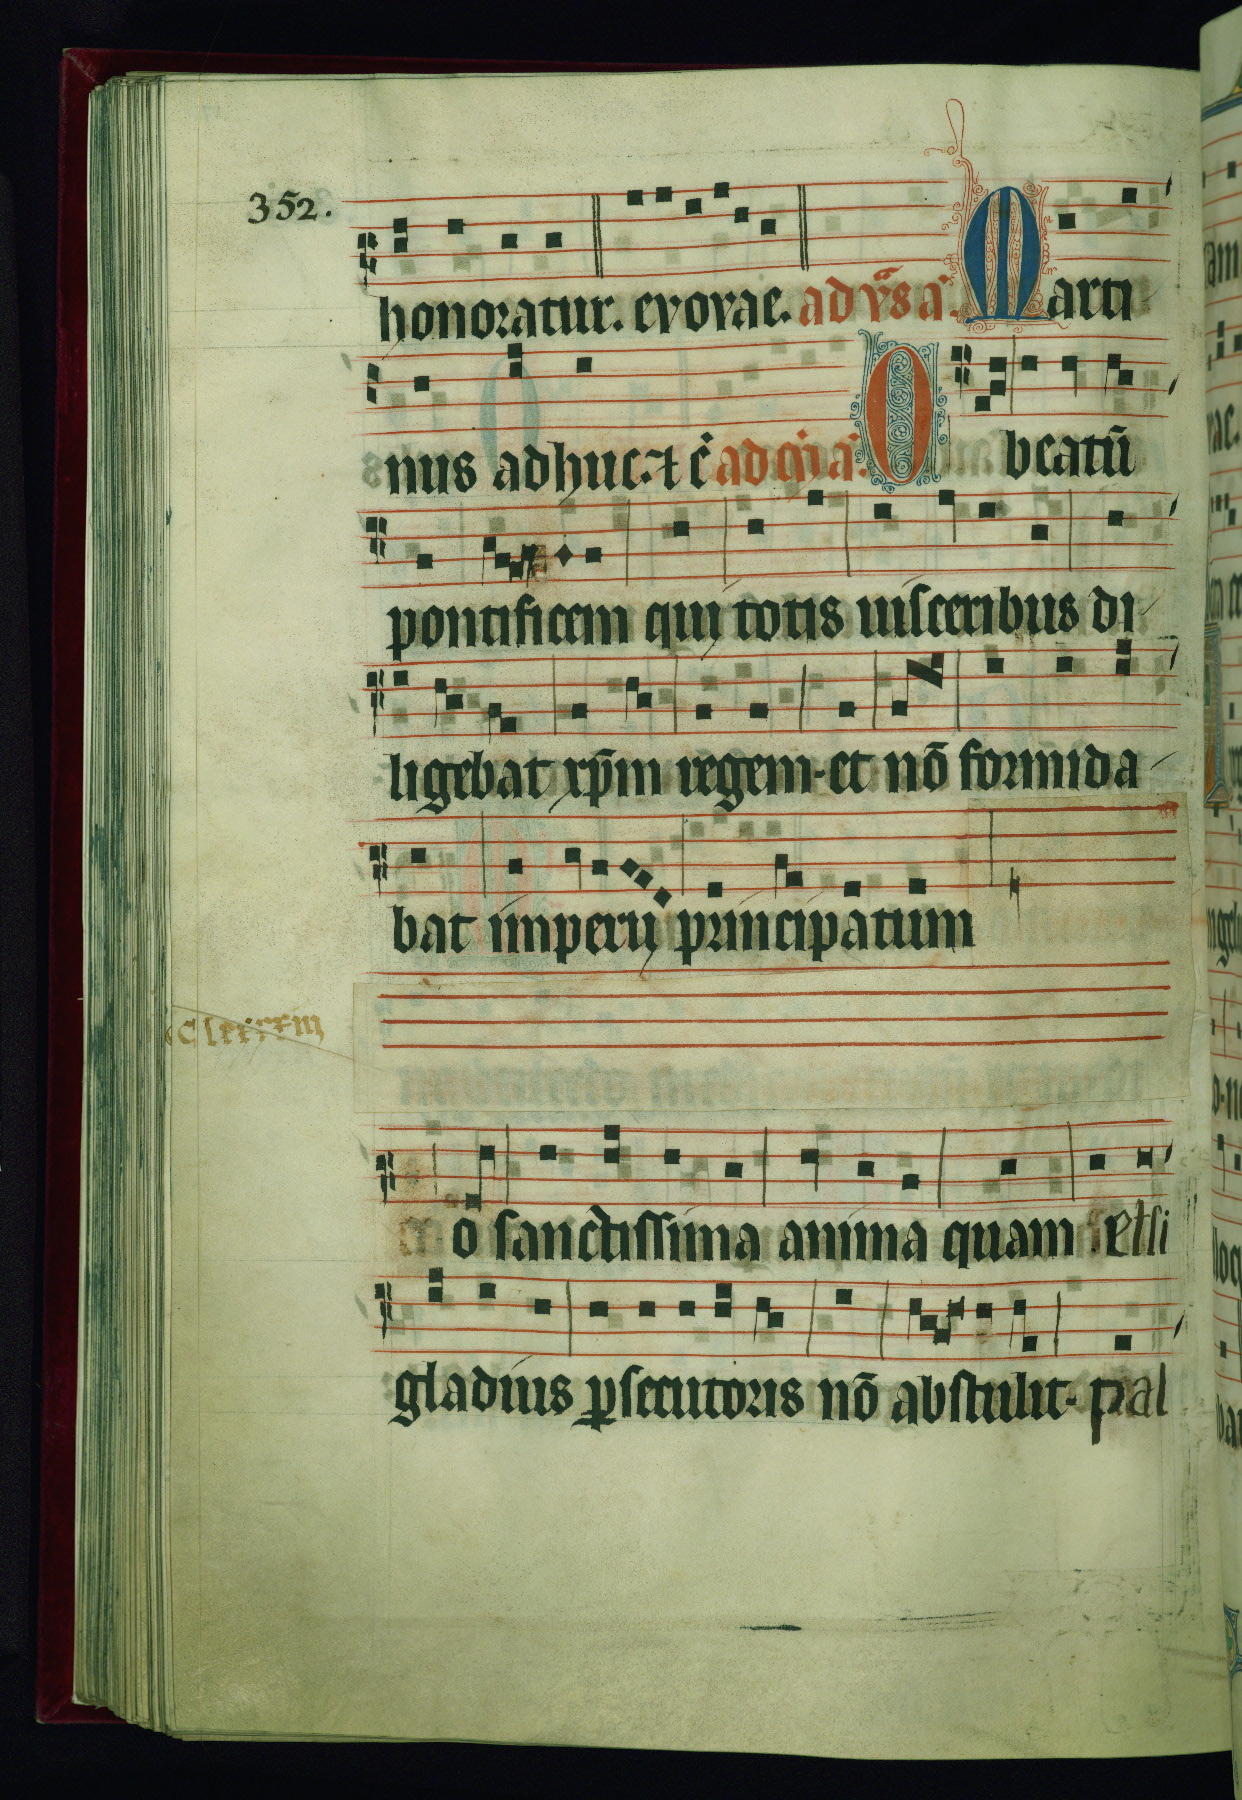 352.
honoratur. evovae. ad v̾s a. Marti
nus adhuc. ⁊ c̄ ad m̄ a. O beatū
pontificem qui totis uisceribus di
ligebat xp̄m regem. et nō formida
bat imperij principatum
clxxxiij
ō sanctissima anima quam etsi
gladius ꝑsecutoris nō abstulit. pal